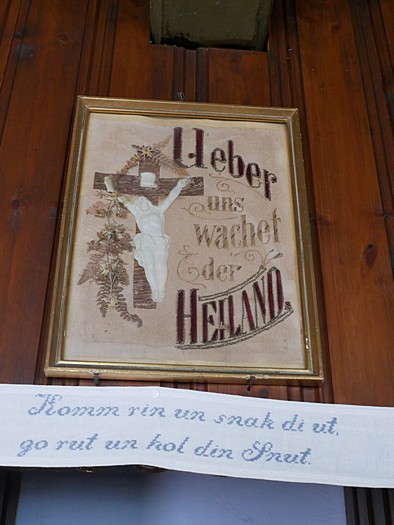 Ueber
uns
wachet
der
HEILAND.
Komm rin un snak di ut,
go rut un hol din Snut.